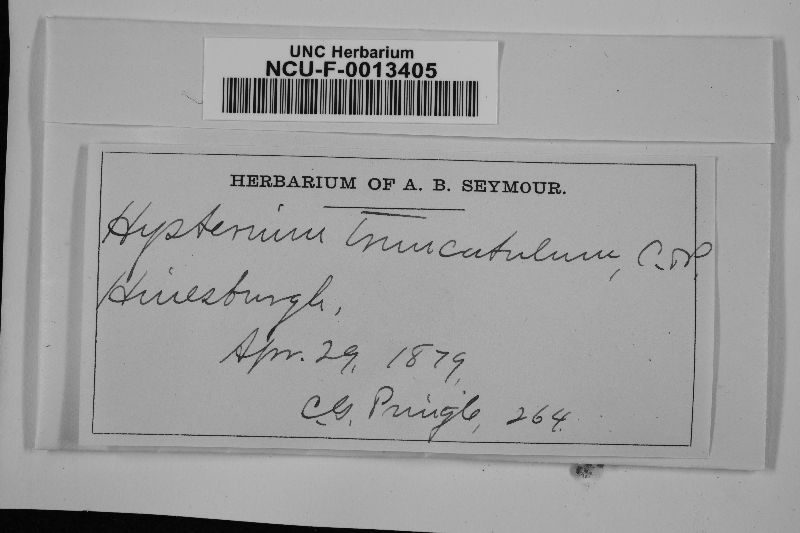 UNC Herbarium
NCU-F-0013405
HERBARIUM OF A. B. SEYMOUR.
Hysterium truncatulum, C. & P.
Hinesburgh,
Apr. 29, 1879,
C.G. Pringle, 264.